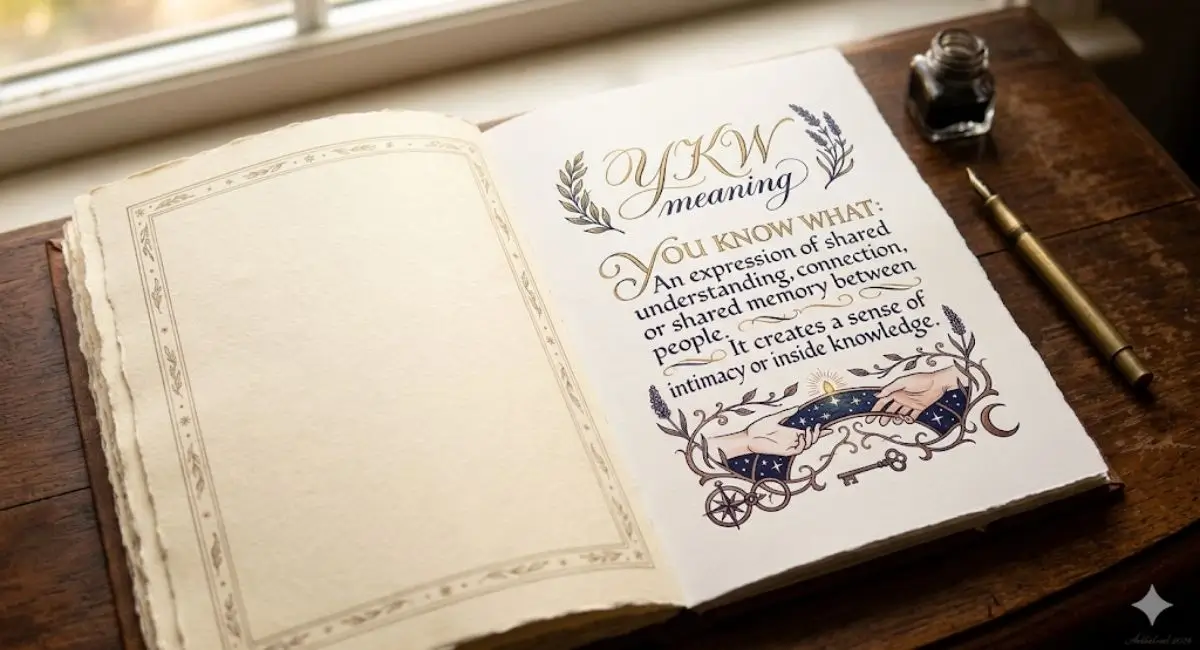 YKW
meaning
YOU KNOW WHAT:
An expression of shared
understanding, connection,
or shared memory between
people.
It creates a sense of
intimacy or inside knowledge.